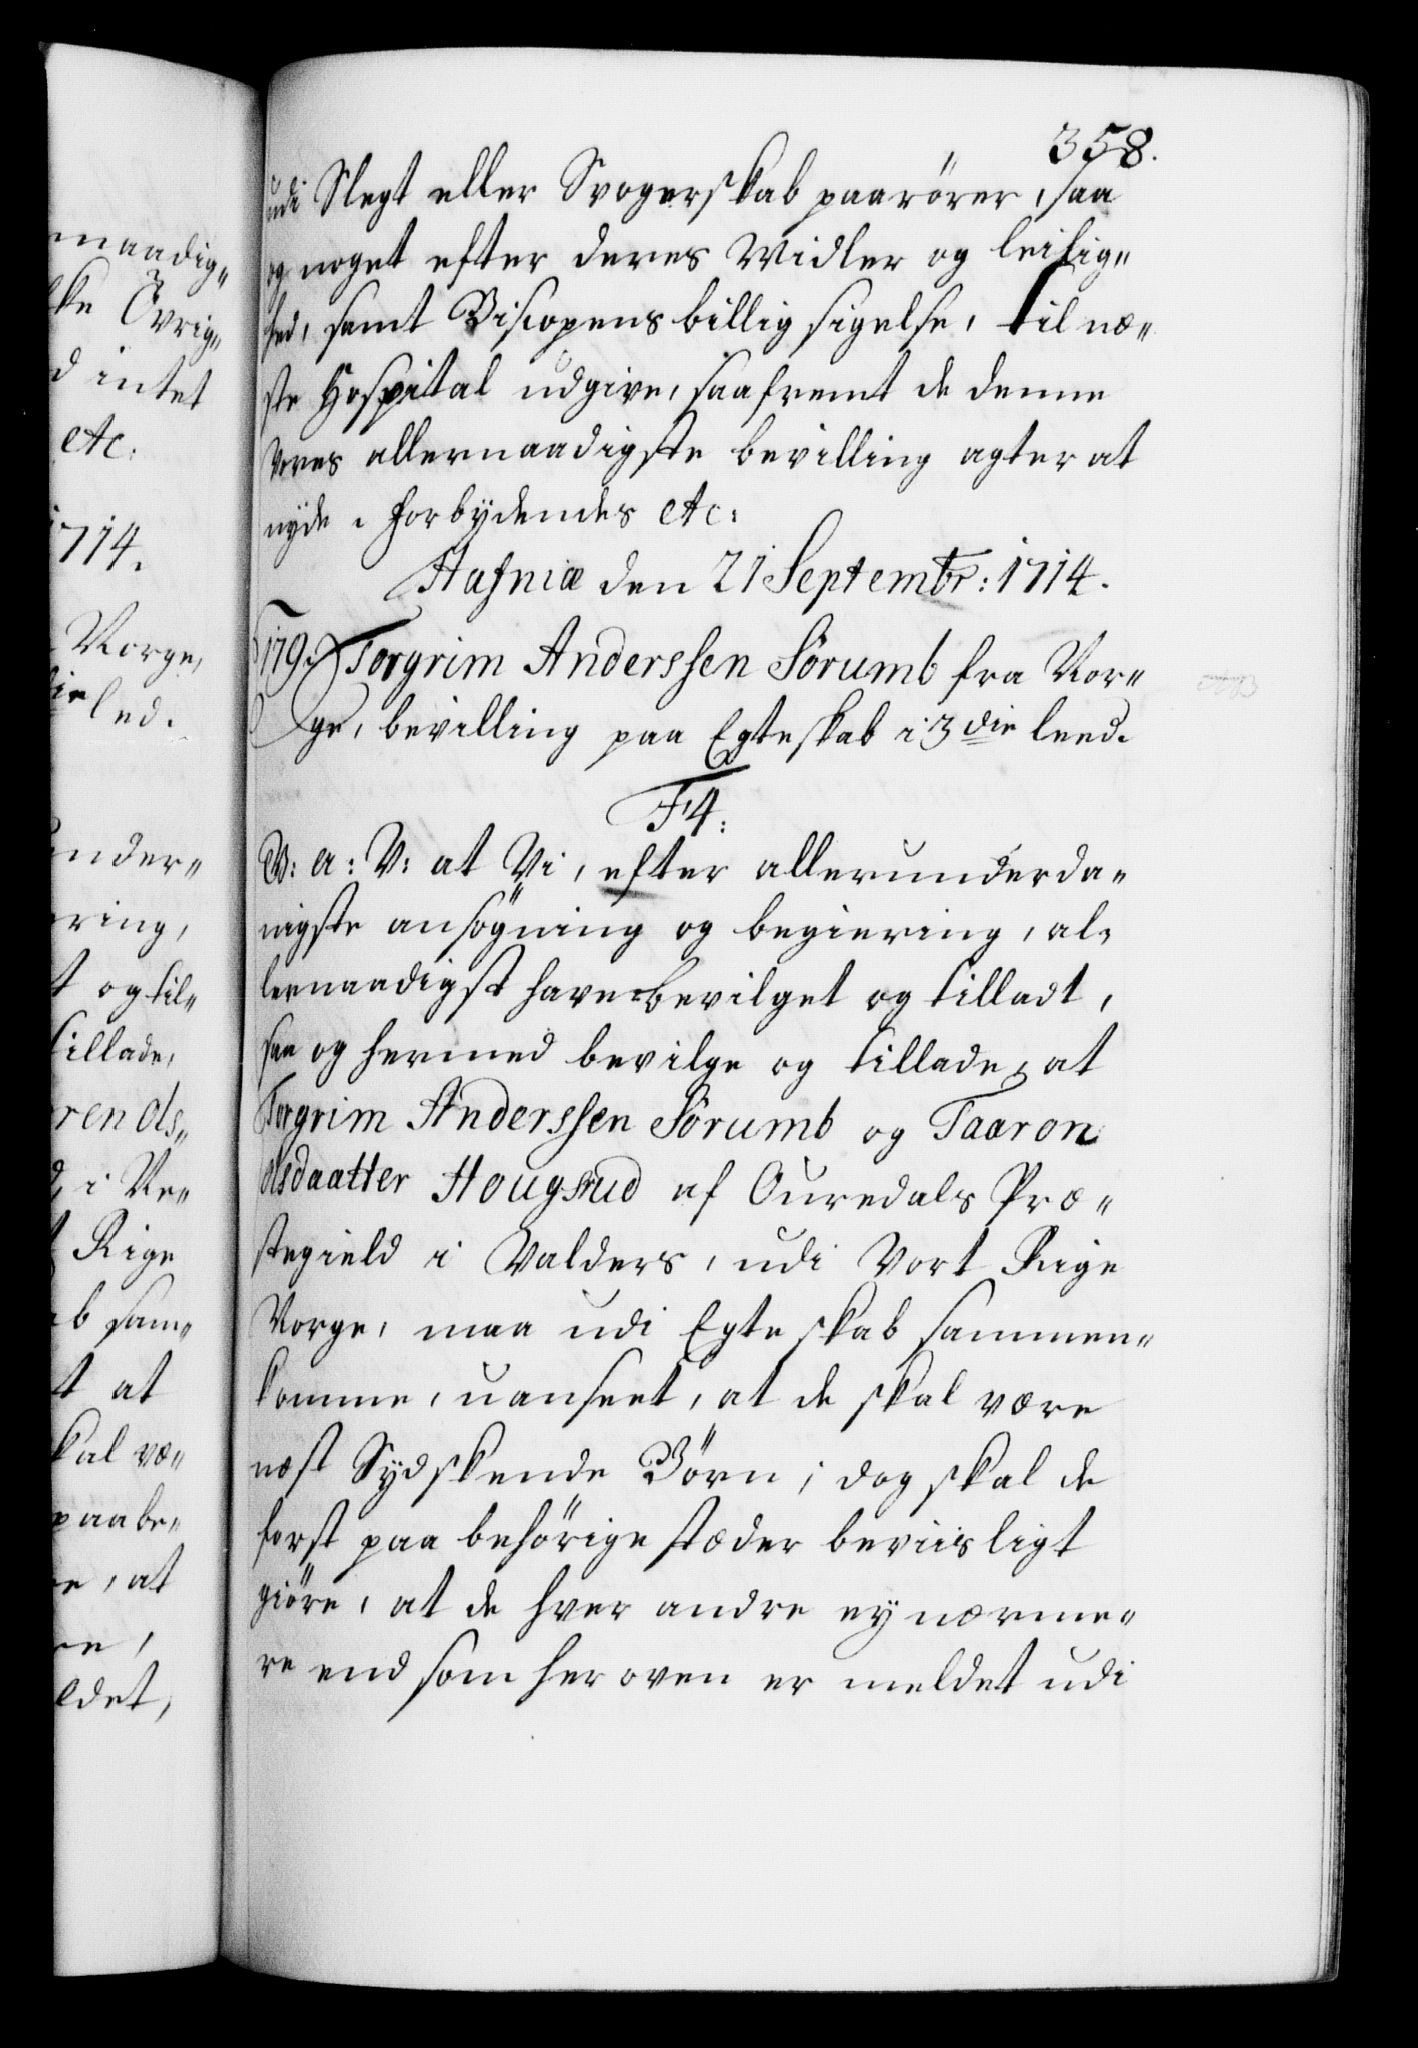 358.
udi Slegt eller Svogerskab paarörer, saa
og noget efter deres Midler og leilig„
hed, samt Biscopens billig sigelse, til næ„
ste Hospital udgive, saafremt de denne
vores allernaadigste bevilling agter at
nyde. Forbydendes etc:
Hafniæ den 21 Septembr: 1714.
179. Torgrim Anderssen Sörumb fra Nor„
ge, bevilling paa Egteskab i 3die leed.
F4:
G: A: V: at Vi, efter allerunderda„
nigste ansögning og begiering, al„
lernaadigst have bevilget og tilladt,
saa og hermed bevilge og tillade, at
Torgrim Anderssen Sörumb og Taaron
Olsdaatter Hougsrud af Ouredals Præ„
stegield i Valders, udi Vort Rige
Norge, maa udi Egteskab sammen„
komme, uanseet, at de skal være
næst Sydskende Börn; dog skal de
först paa behörige stæder beviisligt
giöre, at de hver andre ey nærme„
re end som her oven er meldet udi
maadig„
ske Övrig„
d intet
etc:
1714.
Norge,
die led.
under„
ering,
t og til„
tillade,
rends„
d, i Ne„
t Rige
ab sam„
t at
skal væ„
paabe„
re, at
re,
ldet,